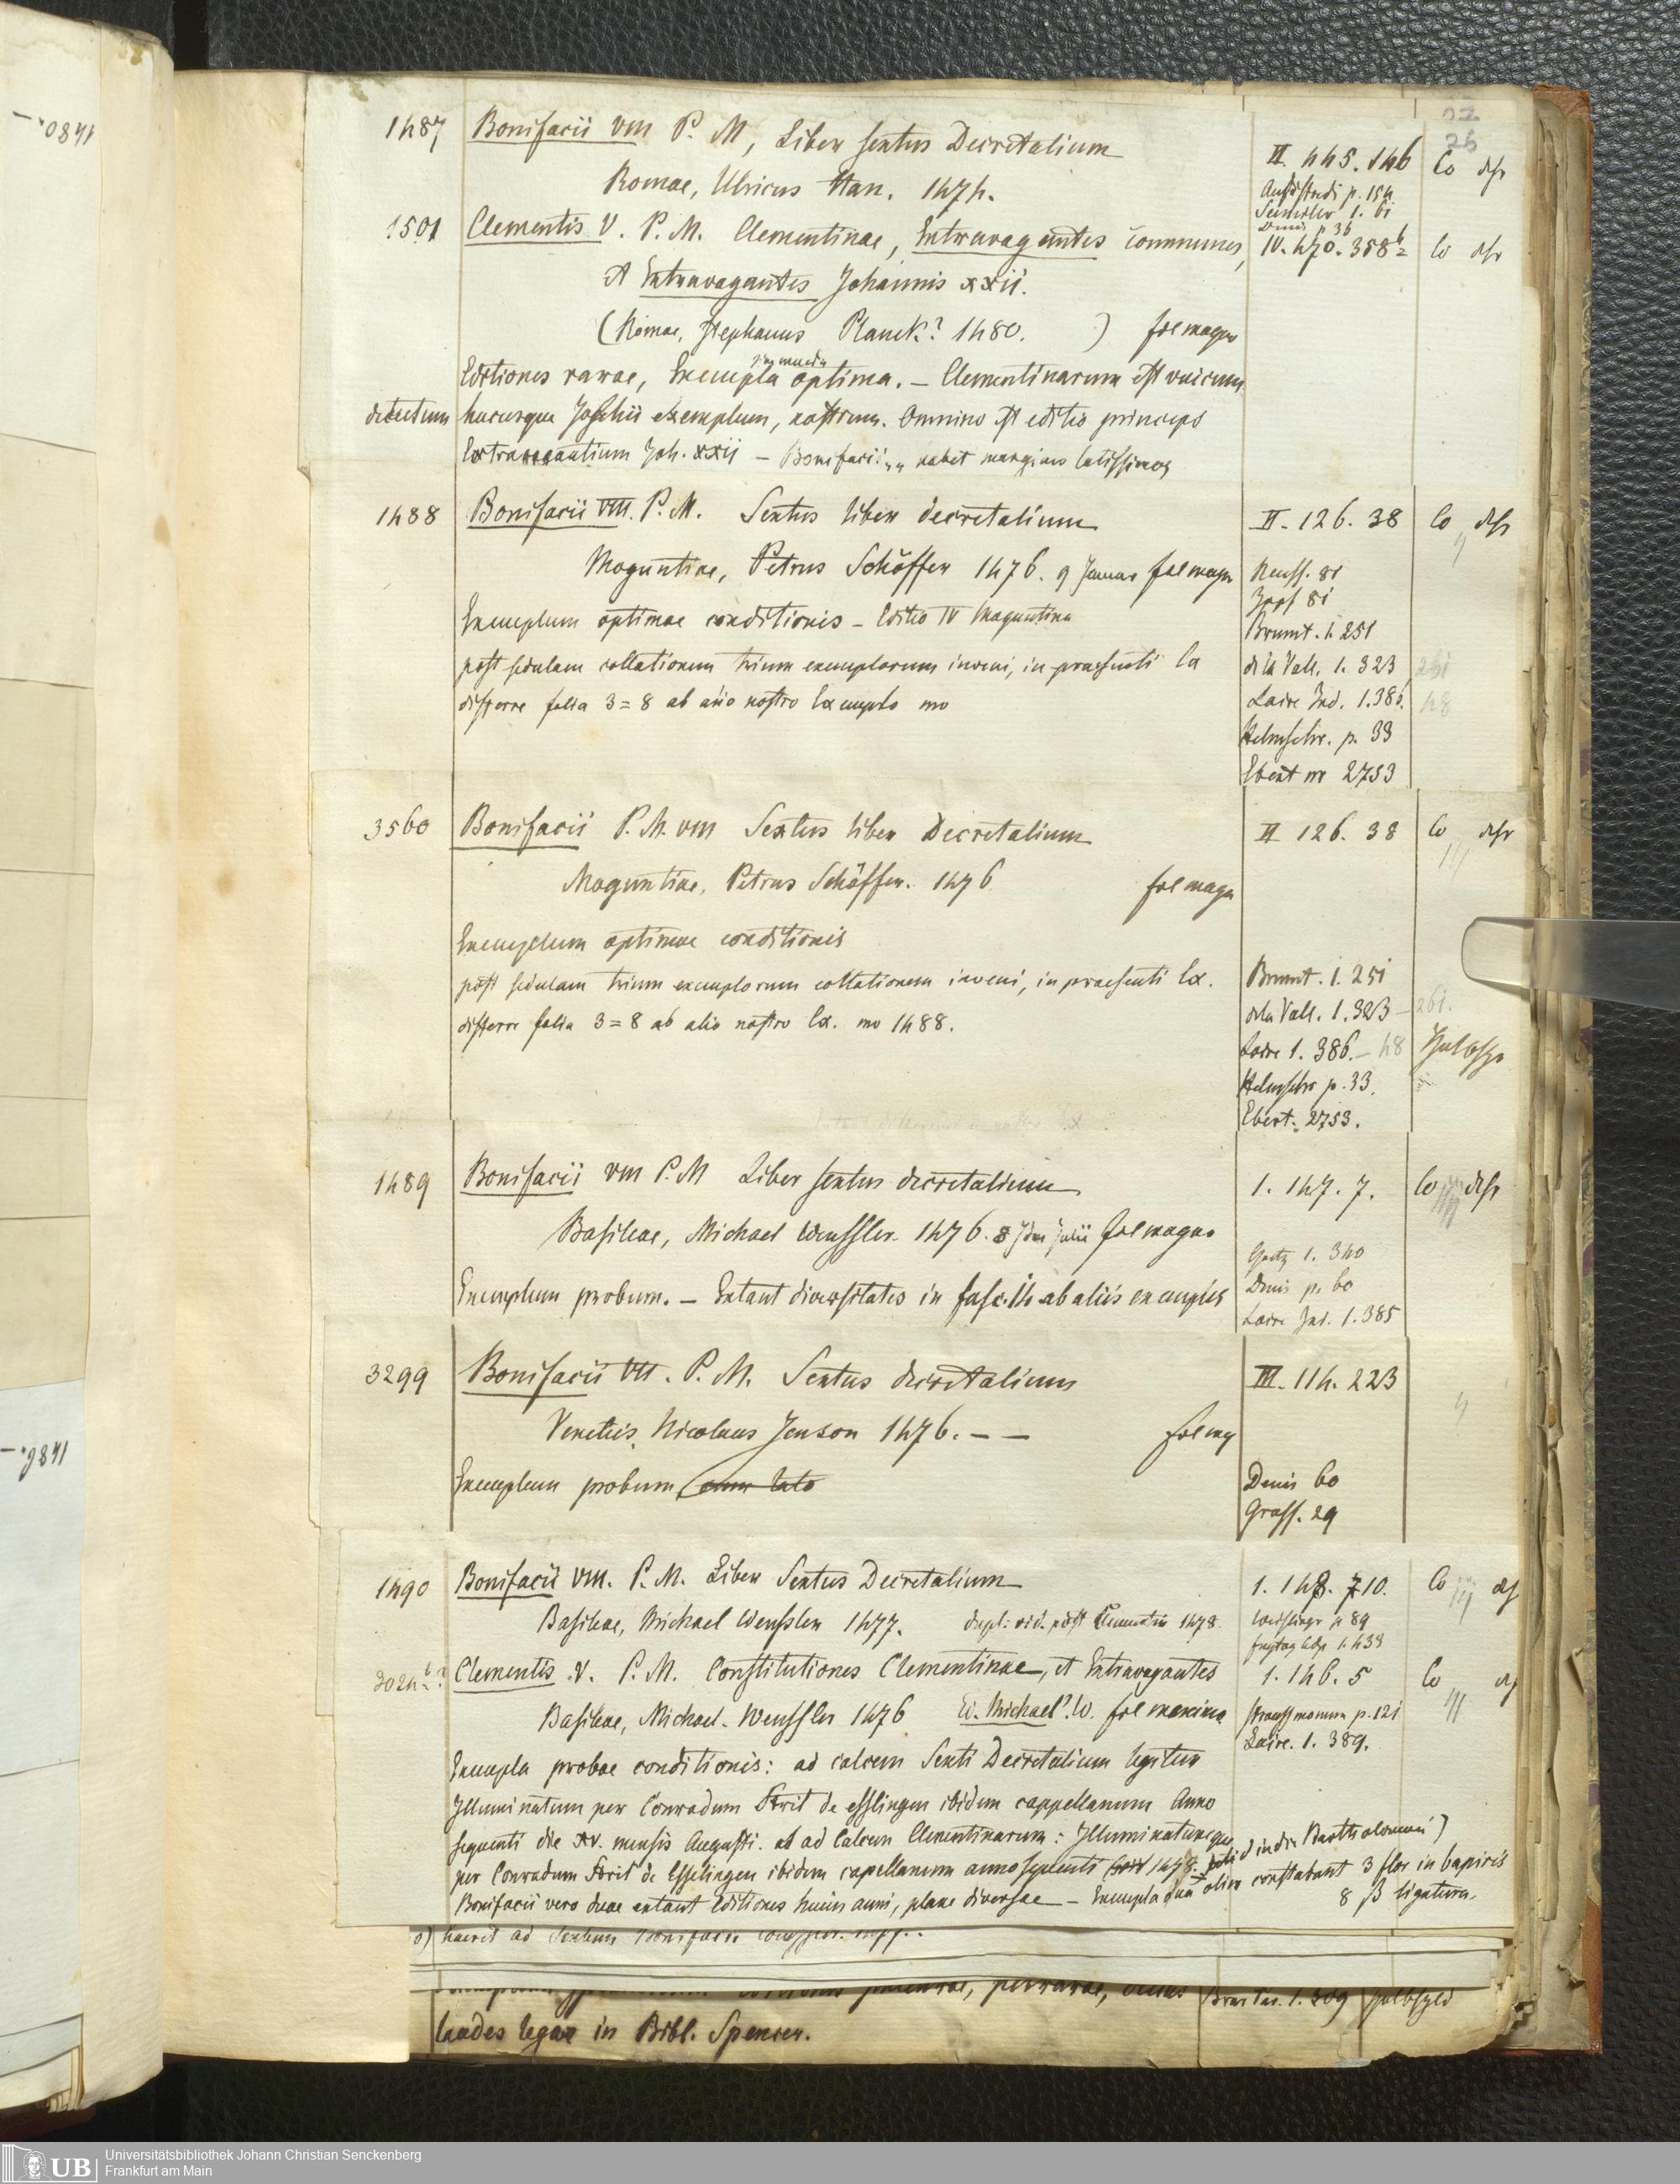 1480.—
1486.—
26
1487 Bonifacii VIII P. M, Liber sextus Decretalium II. 445. 146 Co
Romae, Ulricus Han. 1474. Audifredi p. 154
1501 Clementis V. P. M. Clementinae, Extravagantes communes, IV. 470. 358 b Co
et Extravagantes Johannis XXII.
(Romae, Stephanus Planck? 1480. ) fol magno
Editiones rarae, Exempla optima. — Clementinarum est unicum
detectum hucusque exemplum, nostrum. Omnino est editio princeps
Extravagantium Joh. XXII — Bonifacii habet margines latissimos
1488 Bonifacii VIII. P. M. Sextus liber decretalium II. 126. 38 Co
Moguntiae, Petrus Schöffer 1476. 9 Januar fol magn
81
Zapf 81
Exemplum optimae conditionis — Editio IV Moguntina Brunet. 1. 251
post sedulam collationem trium exemplorum inveni, in praesenti de la Vall. 1. 323
differre folia 3 = 8 ab alio nostro Exemplo Laire Ind. 1. 386.
Helmschr. p. 33
Ebert nr 2753
3560 Bonifacii P. M. VIII Sextus liber Decretalium II 126. 38 Co
Moguntiae, Petrus Schöffer. 1476 fol magn
Exemplum optimae conditionis
post sedulam trium exemplorum collationem inveni, in praesenti Ex. Brunet. 1. 251
differre folia 3 = 8 ab alio nostro Ex. no 1488. de la Vall. 1. 323
Laire 1. 386. — 48
Helmschr p. 33.
Ebert. 2753.
1489 Bonifacii VIII P. M Liber sextus decretalium 1. 147. 7. Co
Basileae, Michael Wenssler. 1476. 8 Julii fol magno
1. 340
Exemplum probum. — Extant diversitates in fasc. ab aliis exemplis Denis p. 60
Laire Ind. 1. 385
3299 Bonifacii VIII. P. M. Sextus decretalium III. 114. 223
Venetiis, Nicolaus Jenson 1476. — — fol mg
Exemplum probum cum lato Denis 60
Grass. 29
1490 Bonifacii VIII. P. M. Liber Sextus Decretalium 1. 148. 10. Co
Basileae, Michael Wenssler 1477. dupl: vid. post Clementis 1478. p 89
Clementis V. P. M. Constitutiones Clementinae, et Extravagantes 1. 146. 5 Co
Basileae, Michael. Wenssler 1476 Ed. Michael W. fol maximo p. 121
Laire. 1. 389.
Exempla probae conditionis: ad calcem Sexti Decretalium legitur
Illuminatum per Conradum de esslingen ibidem cappellanum Anno
sequenti die XV. mensis Augusti. at ad Calcem Clementinarum: Illuminatumque
per Conradum de Esselingen ibidem capellanum anno sequenti 1478. in die Bartholomaei)
Bonifacii vero duae extant Editiones huius anni, plane diversae — Exempla olim constabant 3 flor in
8 ß ligatura.
laudes legas in Bibl. Spencer.
UB
Universitätsbibliothek Johann Christian Senckenberg
Frankfurt am Main